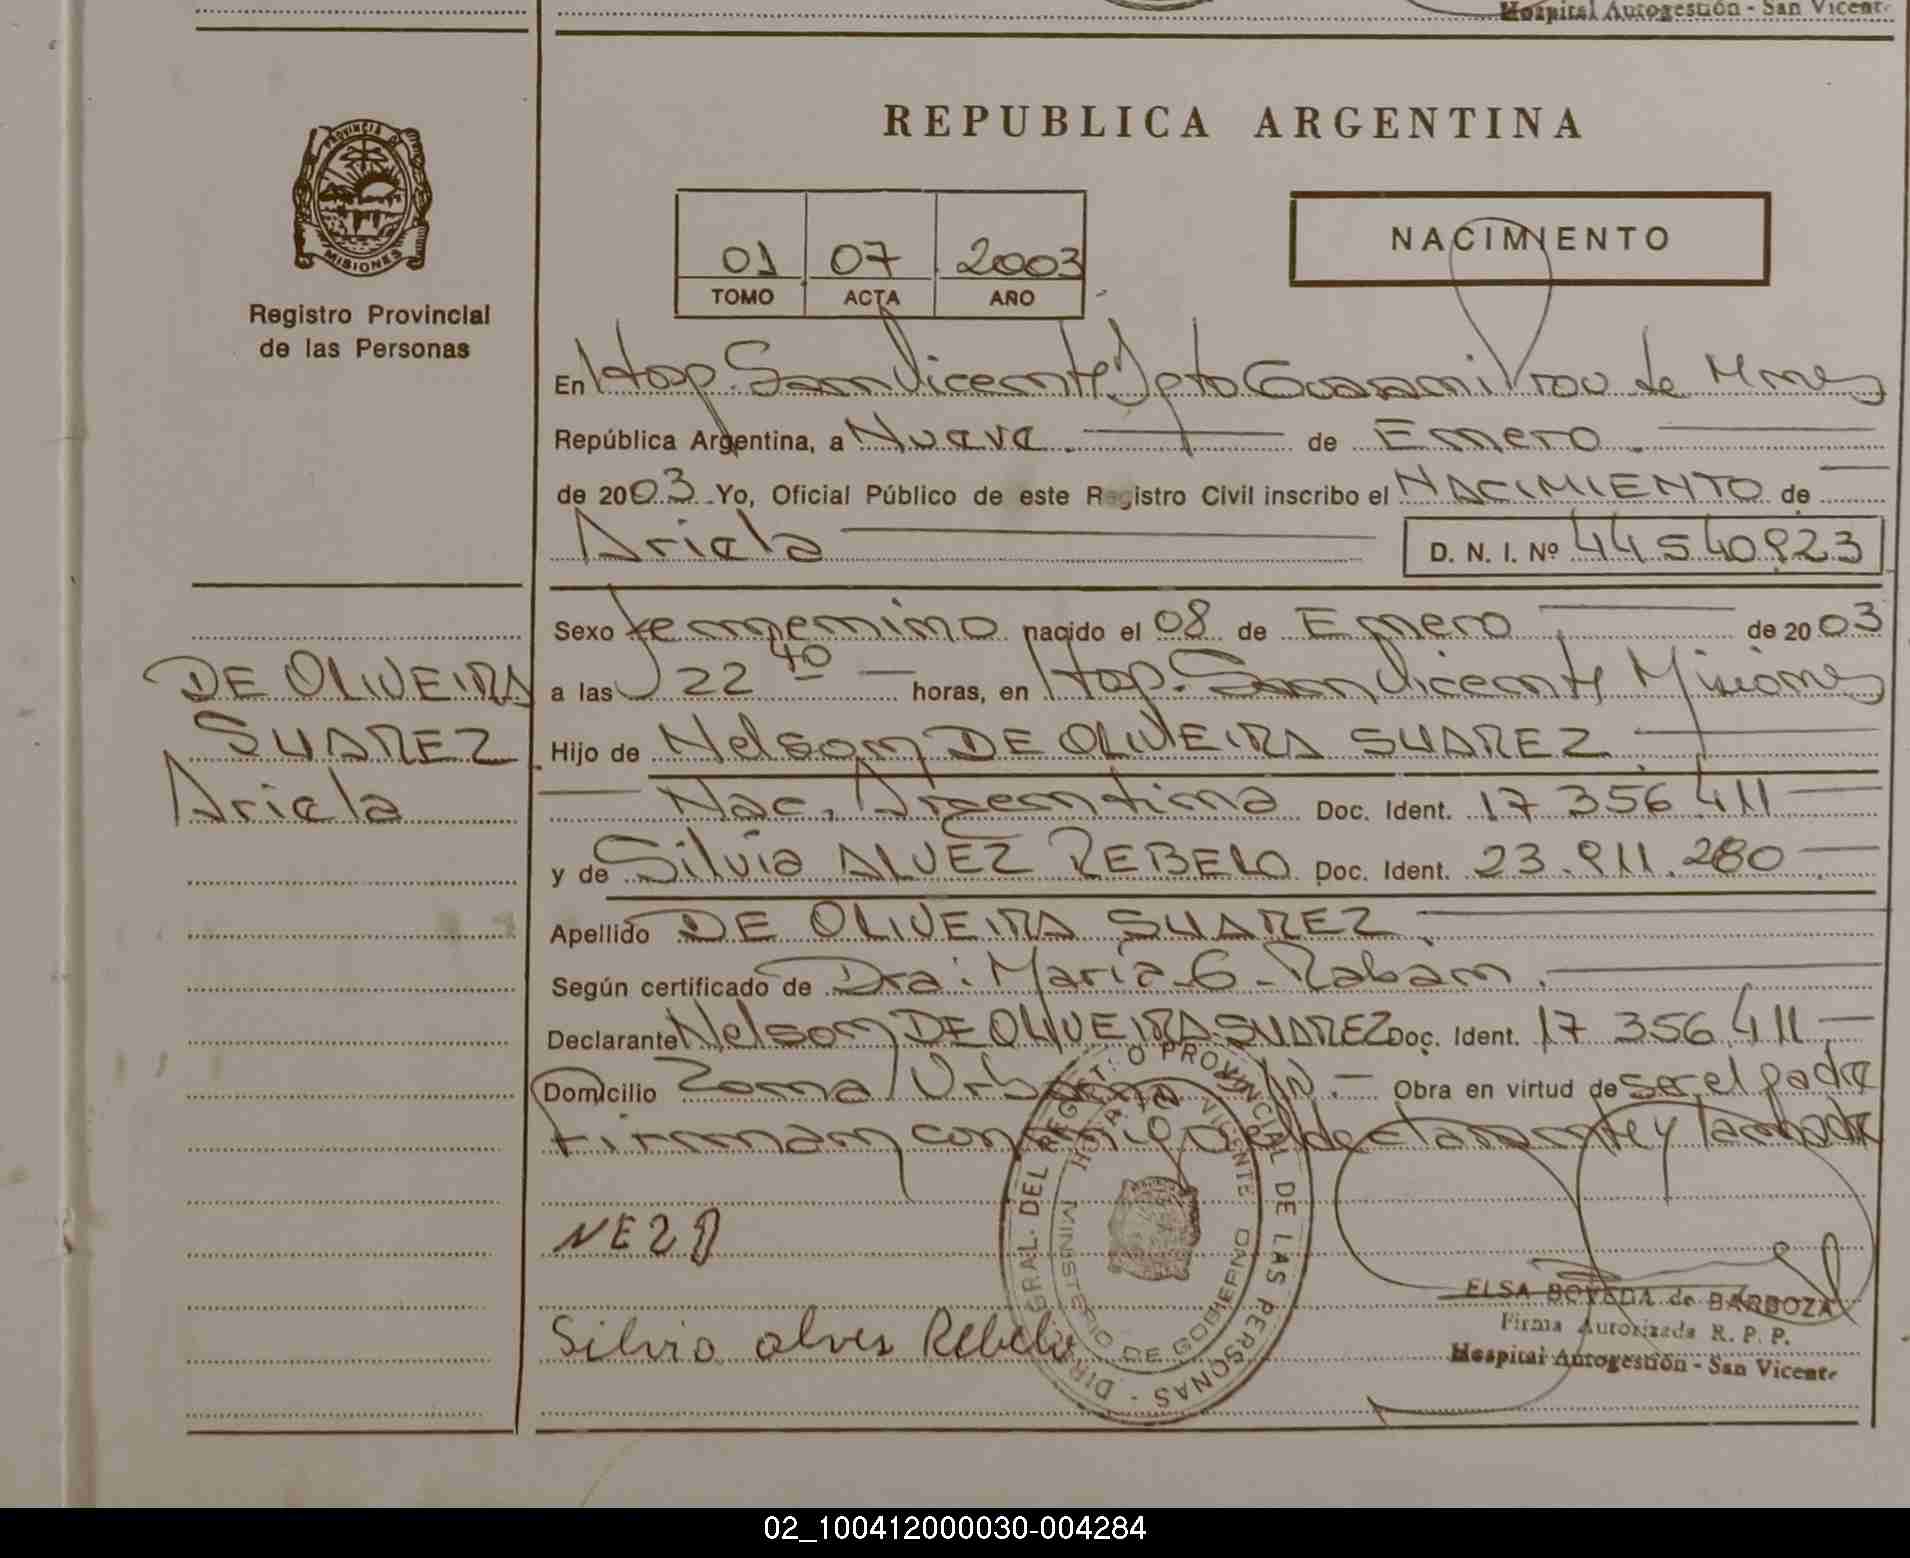 Hospital Autogestión - San Vicente
PROVINCIA DE
MISIONES
Registro Provincial
de las Personas
REPUBLICA ARGENTINA
01 07 2003
TOMO ACTA AÑO
NACIMIENTO
En Hosp. San Vicente Dpto Guarani Prov de Mnes
República Argentina, a Nueve. de Enero.
de 2003. Yo, Oficial Público de este Registro Civil inscribo el NACIMIENTO de
Ariela D. N. I. Nº 44540923
DE OLIVEIRA
SUAREZ
Ariela
Sexo femenino nacido el 08 de Enero de 2003
a las 22 40 horas, en Hosp. San Vicente Misiones
Hijo de Nelson DE OLIVEIRA SUAREZ.
Nac. Argentina Doc. Ident. 17.356.411
y de Silvia ALVEZ REBELO Doc. Ident. 23.911.280
Apellido DE OLIVEIRA SUAREZ.
Según certificado de Dra: Maria G. Raban.
Declarante Nelson DE OLIVEIRA SUAREZ Doc. Ident. 17.356.411
Domicilio Zona Urbana Obra en virtud de ser el padre
Firman conmigo el declarante y la madre
DIR. GRAL. DEL REGISTRO PROVINCIAL DE LAS PERSONAS
VICENTE
MINISTERIO DE GOBIERNO
Silvia alves Rebelo
ELSA BOVEDA de BARBOZA
Firma Autorizada R. P. P.
Hospital Autogestión - San Vicente
02_100412000030-004284